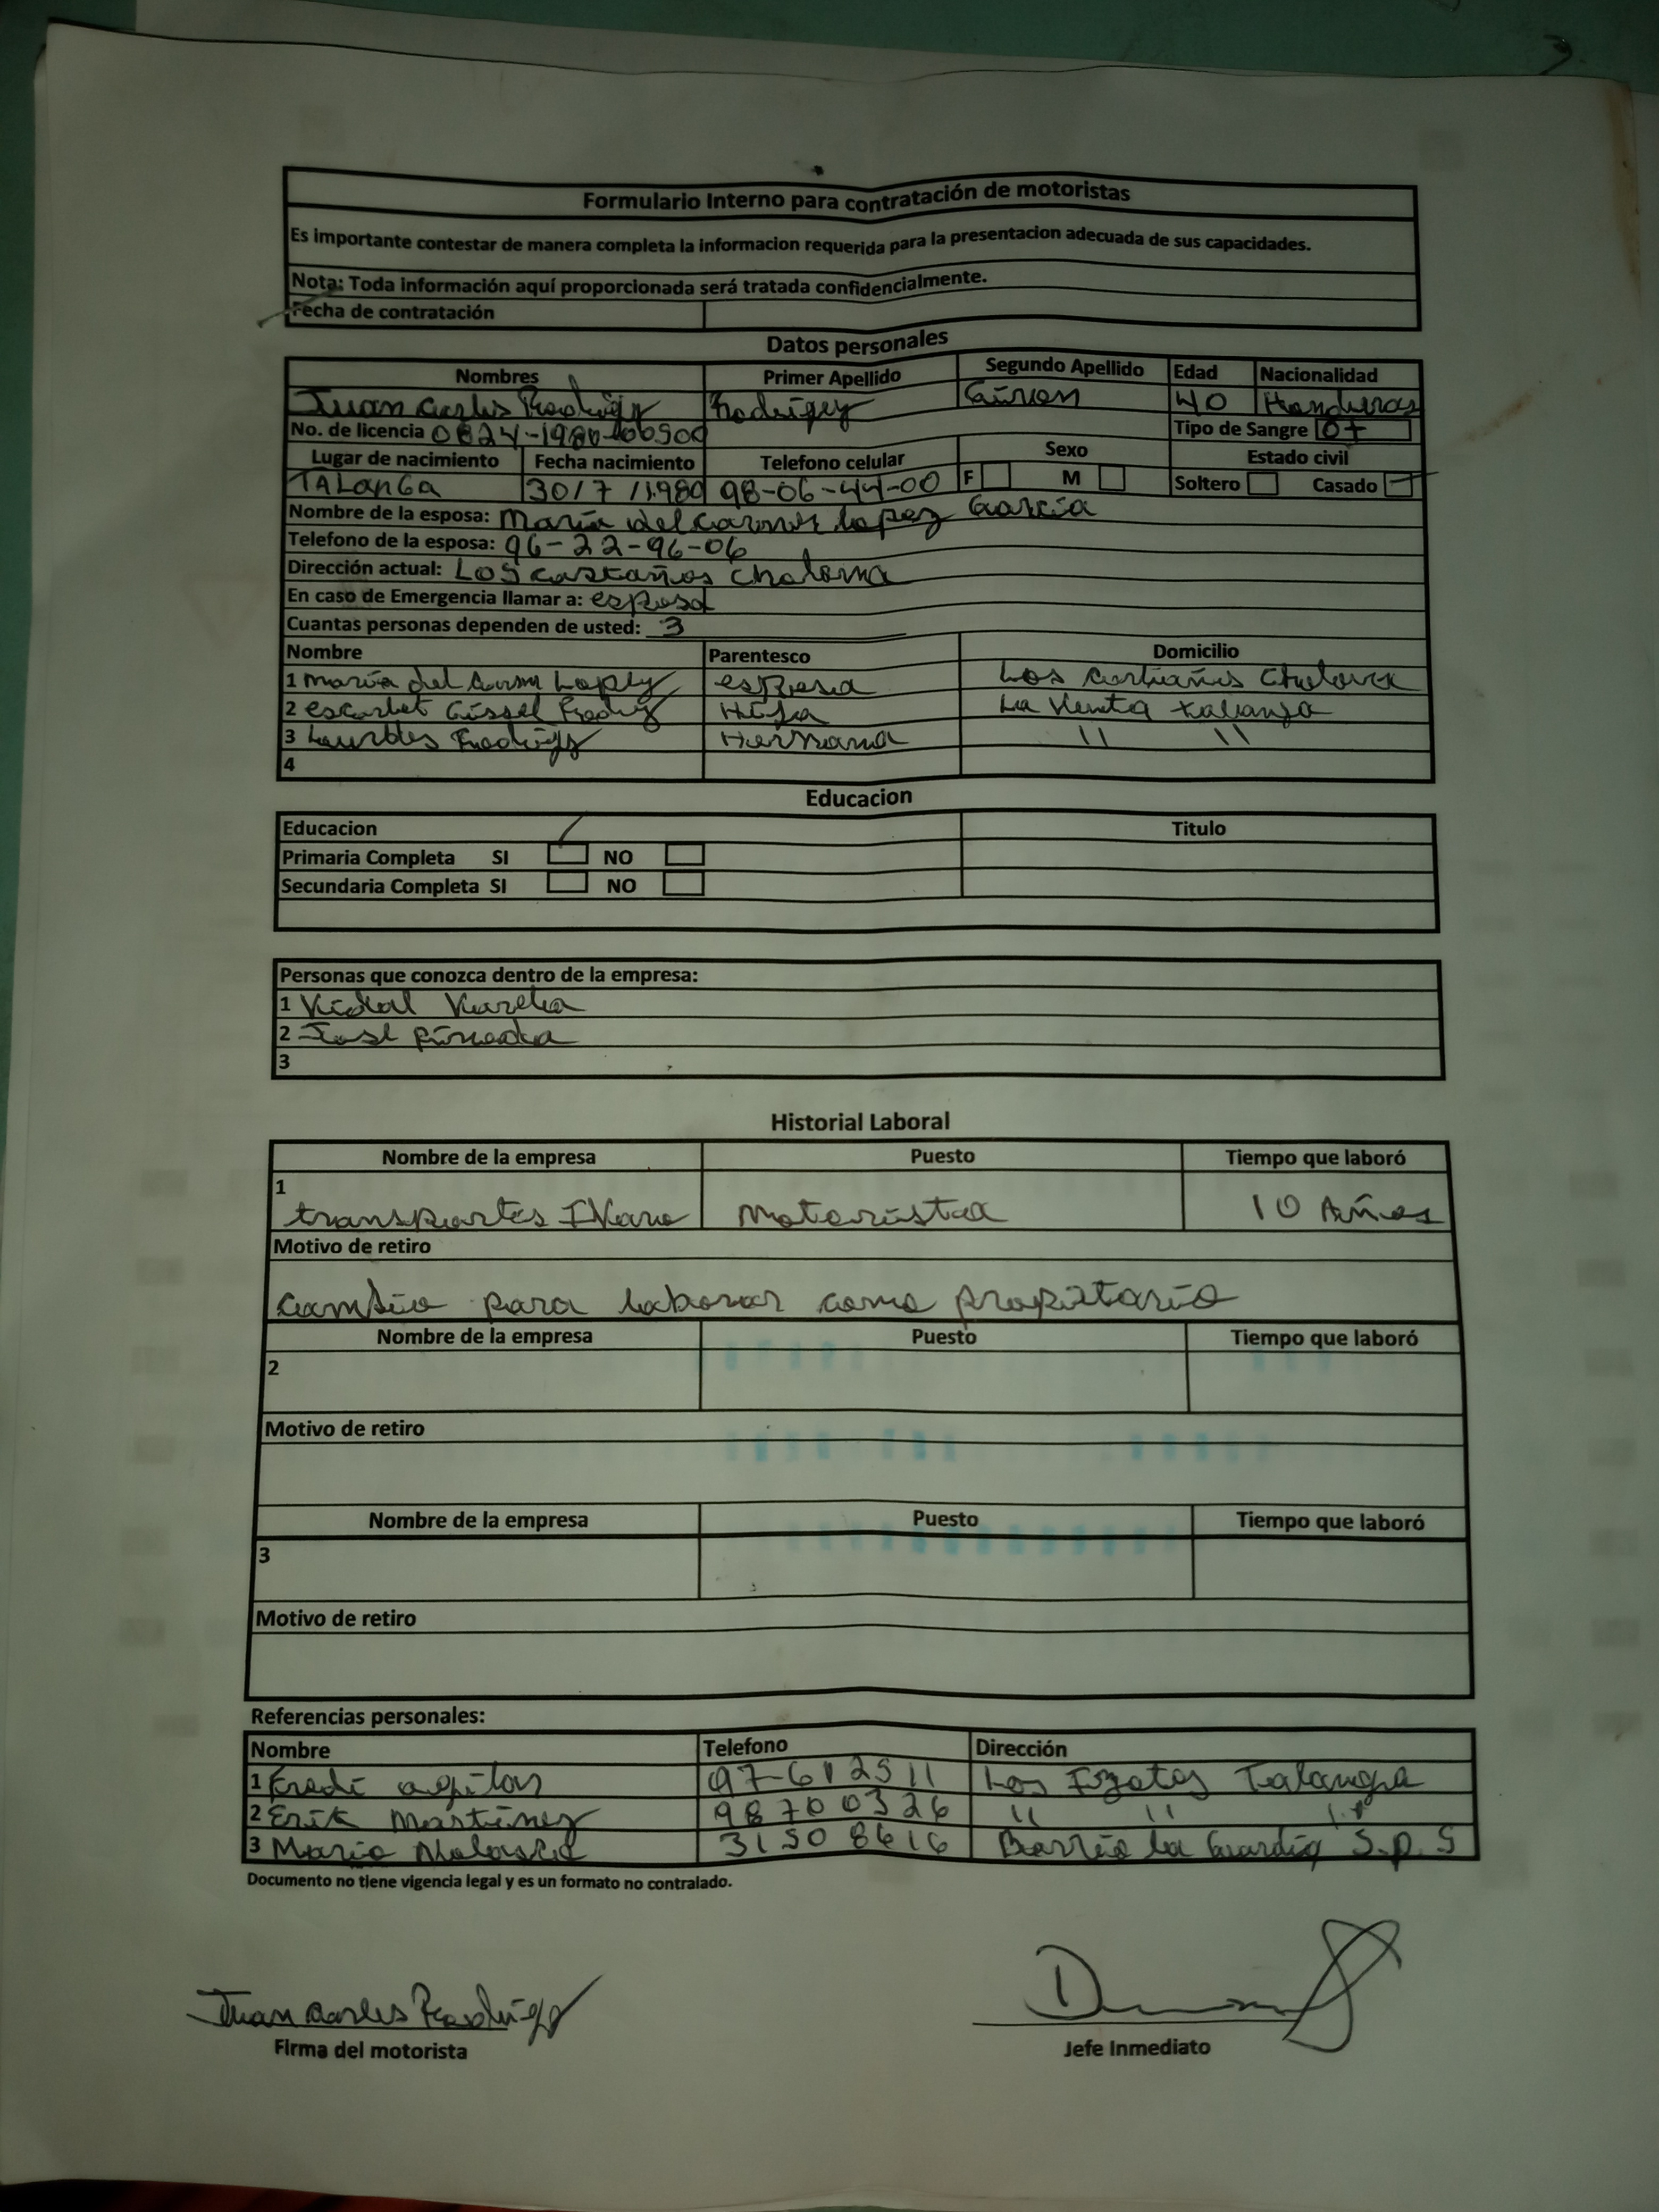 Formulario Interno para contratación de motoristas
Es importante contestar de manera completa la informacion requerida para la presentacion adecuada de sus capacidades.
Nota: Toda información aquí proporcionada será tratada confidencialmente.
Fecha de contratación
Datos personales
Nombres Primer Apellido Segundo Apellido Edad Nacionalidad
Juan Carlos Rodriguez Rodriguez 40 Honduras
No. de licencia Tipo de Sangre O+
Lugar de nacimiento Fecha nacimiento Telefono celular Sexo Estado civil
TALANGA 30/7/1980 98-06-44-00 F M Soltero Casado
Nombre de la esposa: María del Carmen Lopez García
Telefono de la esposa: 96-22-96-06
Dirección actual: Los castaños Choloma
En caso de Emergencia llamar a: esposa
Cuantas personas dependen de usted: 3
Nombre Parentesco Domicilio
1 María del Carmen Lopez esposa Los Choloma
2 Rodriguez Hija La Venta talanga
3 Lourdes Rodriguez Hermana 11 11
4
Educacion
Educacion Titulo
Primaria Completa SI NO
Secundaria Completa SI NO
Personas que conozca dentro de la empresa:
1 Vidal Varela
2 pineda
3
Historial Laboral
Nombre de la empresa Puesto Tiempo que laboró
1
transportes Motorista 10 Años
Motivo de retiro
cambio para laborar como propitario
Nombre de la empresa Puesto Tiempo que laboró
2
Motivo de retiro
Nombre de la empresa Puesto Tiempo que laboró
3
Motivo de retiro
Referencias personales:
Nombre Telefono Dirección
1 Fredi 97-612511 Los Talanga
2 Erik Martinez 98700326 11 11 11
3 Mario 31508616 Barrio la Guardia S.P.S
Documento no tiene vigencia legal y es un formato no contralado.
Juan Carlos Rodriguez
Firma del motorista Jefe Inmediato